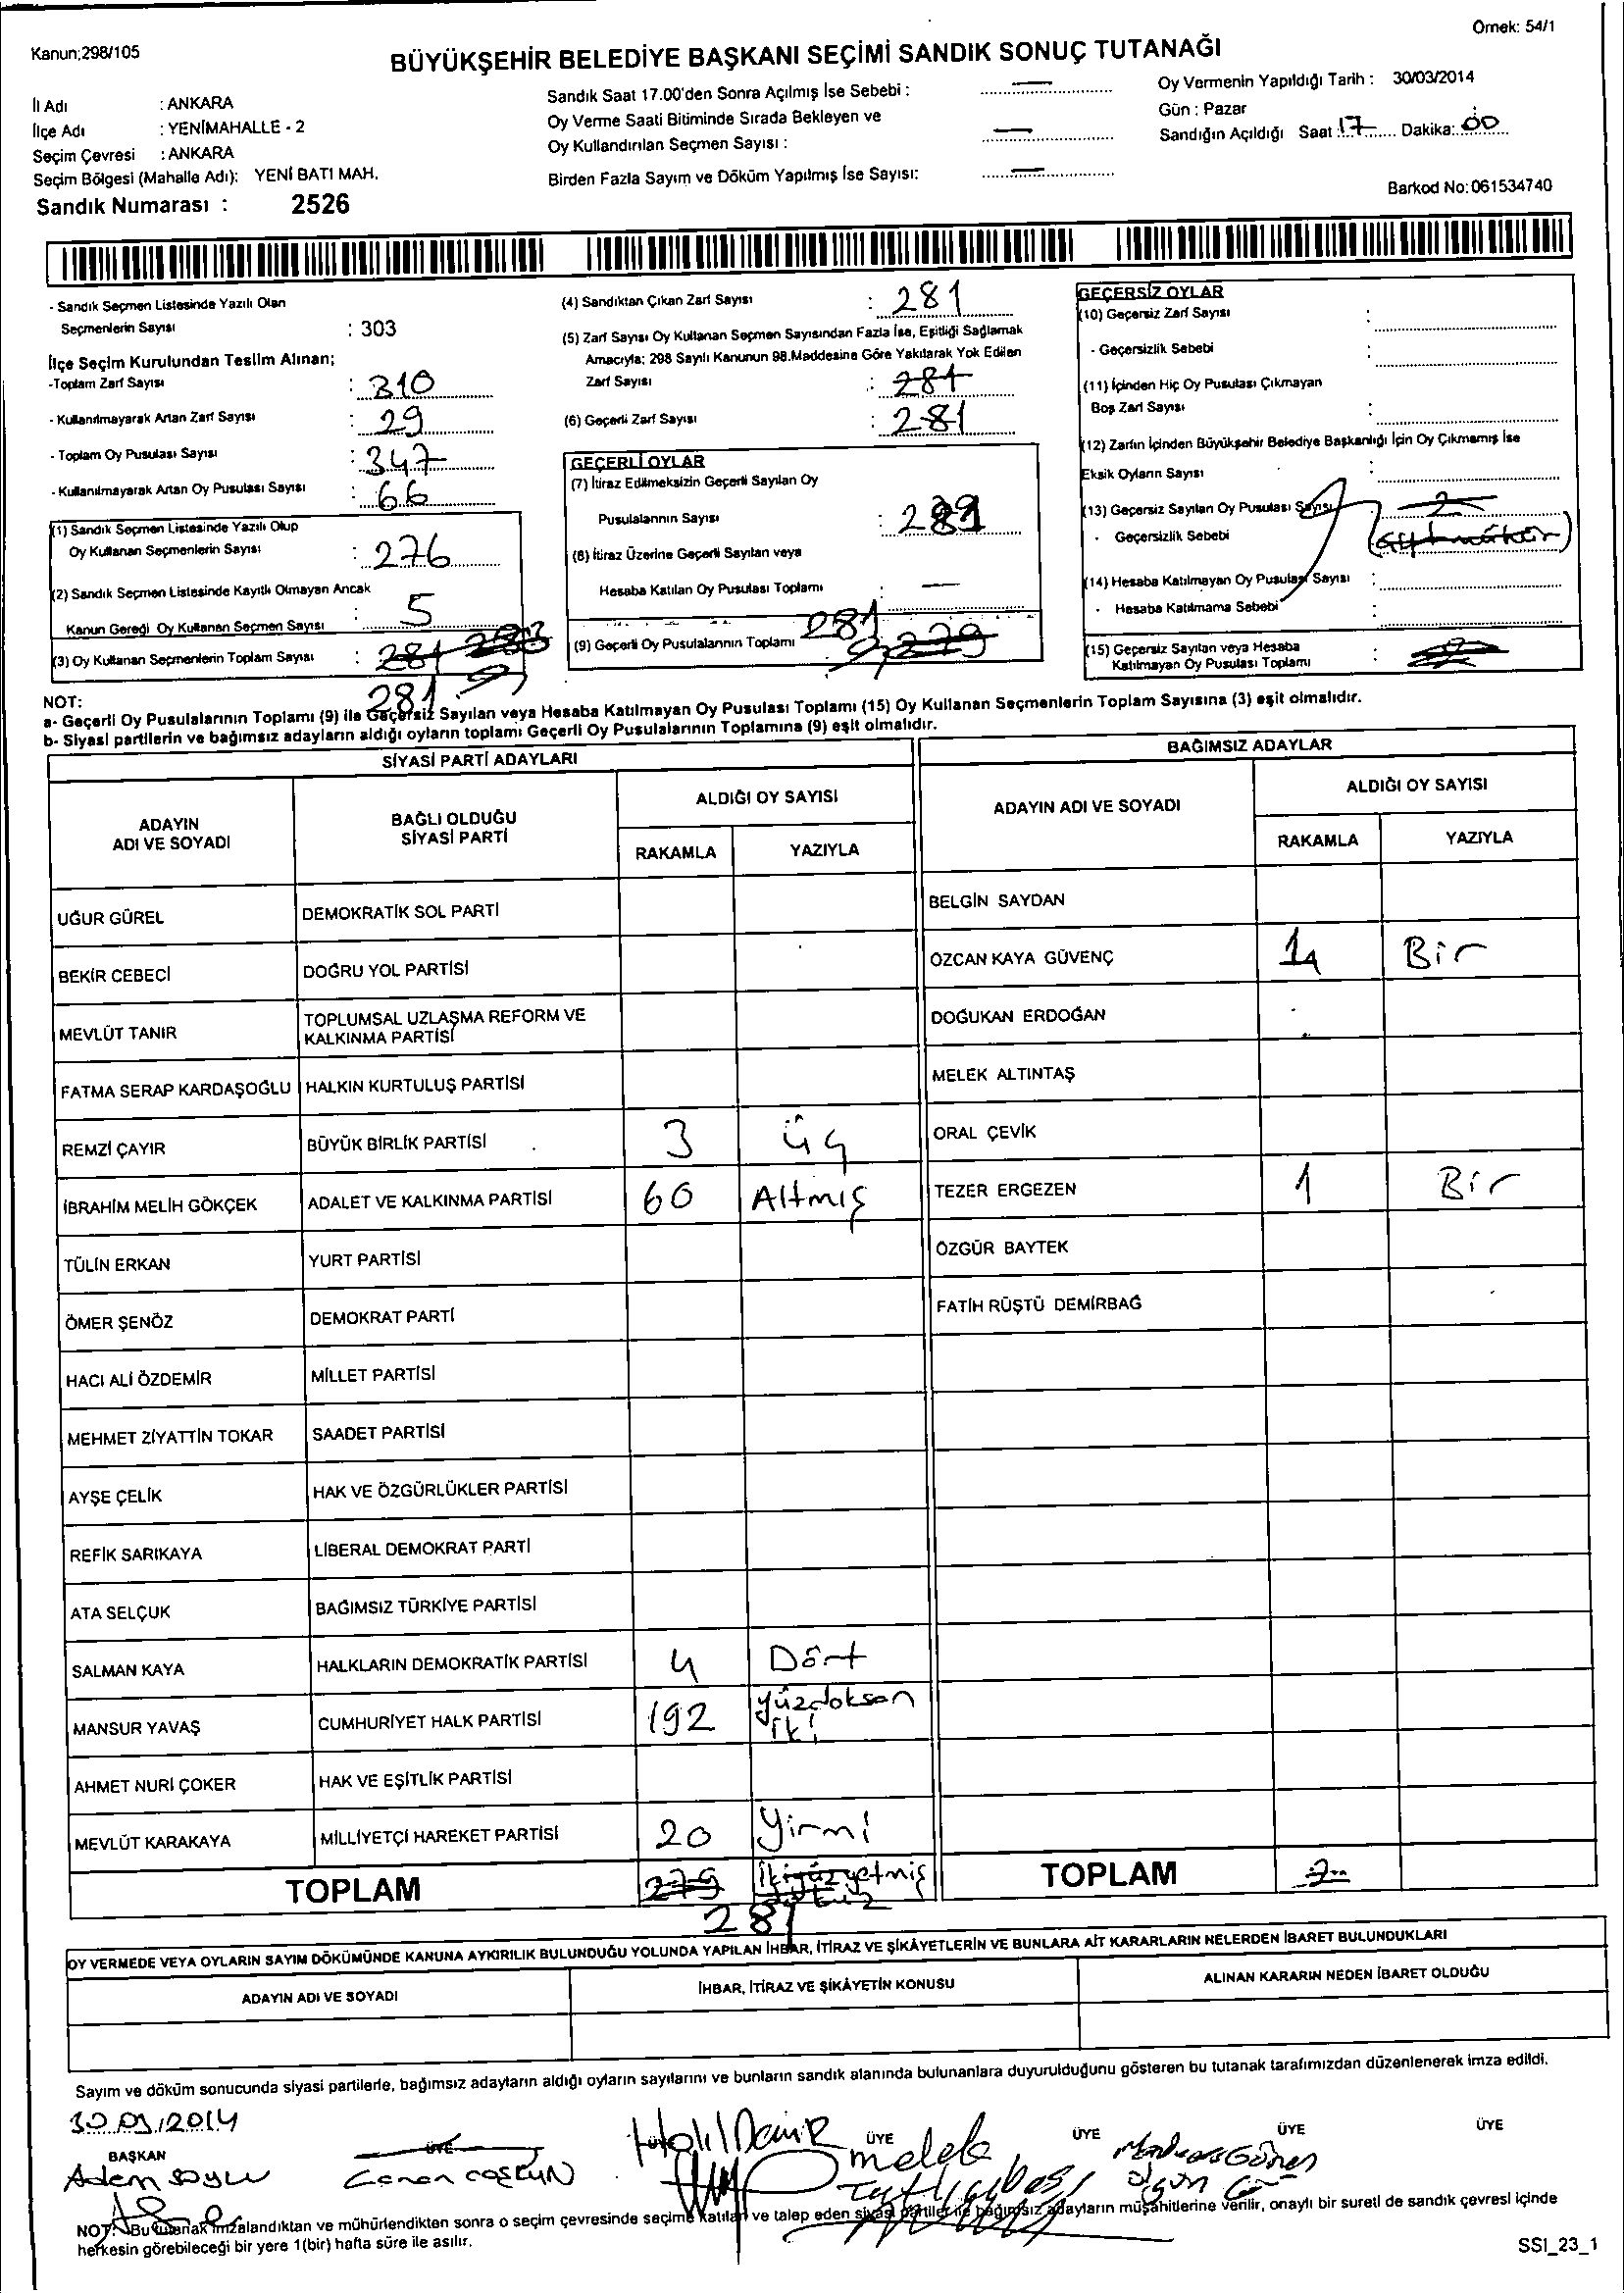 Örnek: 54/1
Kanun;298/105
BÜYÜKŞEHİR BELEDİYE BAŞKANI SEÇİMİ SANDIK SONUÇ TUTANAĞI
İl Adı : ANKARA
İlçe Adı : YENİMAHALLE - 2
Seçim Çevresi : ANKARA
Seçim Bölgesi (Mahalle Adı): YENİ BATI MAH.
Sandık Numarası : 2526
Sandık Saat 17.00'den Sonra Açılmış İse Sebebi : —
Oy Verme Saati Bitiminde Sırada Bekleyen ve
Oy Kullandırılan Seçmen Sayısı : —
Birden Fazla Sayım ve Döküm Yapılmış İse Sayısı: —
Oy Vermenin Yapıldığı Tarih : 30/03/2014
Gün : Pazar
Sandığın Açıldığı Saat 17 Dakika: 00
Barkod No: 061534740
- Sandık Seçmen Listesinde Yazılı Olan
Seçmenlerin Sayısı : 303
İlçe Seçim Kurulundan Teslim Alınan;
-Toplam Zarf Sayısı : 310
- Kullanılmayarak Artan Zarf Sayısı : 29
- Toplam Oy Pusulası Sayısı : 347
- Kullanılmayarak Artan Oy Pusulası Sayısı : 66
(1) Sandık Seçmen Listesinde Yazılı Olup
Oy Kullanan Seçmenlerin Sayısı : 276
(2) Sandık Seçmen Listesinde Kayıtlı Olmayan Ancak
Kanun Gereği Oy Kullanan Seçmen Sayısı : 5
(3) Oy Kullanan Seçmenlerin Toplam Sayısı : 281
281
(4) Sandıktan Çıkan Zarf Sayısı : 281
(5) Zarf Sayısı Oy Kullanan Seçmen Sayısından Fazla İse, Eşitliği Sağlamak
Amacıyla; 298 Sayılı Kanunun 98.Maddesine Göre Yakılarak Yok Edilen
Zarf Sayısı : 281
(6) Geçerli Zarf Sayısı : 281
GEÇERLİ OYLAR
(7) İtiraz Edilmeksizin Geçerli Sayılan Oy
Pusulalarının Sayısı : 281
(8) İtiraz Üzerine Geçerli Sayılan veya
Hesaba Katılan Oy Pusulası Toplamı : —
(9) Geçerli Oy Pusulalarının Toplamı : 281
279
GEÇERSİZ OYLAR
(10) Geçersiz Zarf Sayısı :
- Geçersizlik Sebebi :
(11) İçinden Hiç Oy Pusulası Çıkmayan
Boş Zarf Sayısı :
(12) Zarfın İçinden Büyükşehir Belediye Başkanlığı İçin Oy Çıkmamış İse
Eksik Oyların Sayısı :
(13) Geçersiz Sayılan Oy Pusulası Sayısı 2
- Geçersizlik Sebebi
(14) Hesaba Katılmayan Oy Pusulası Sayısı :
- Hesaba Katılmama Sebebi :
(15) Geçersiz Sayılan veya Hesaba
Katılmayan Oy Pusulası Toplamı :
NOT:
a- Geçerli Oy Pusulalarının Toplamı (9) ile Geçersiz Sayılan veya Hesaba Katılmayan Oy Pusulası Toplamı (15) Oy Kullanan Seçmenlerin Toplam Sayısına (3) eşit olmalıdır.
b- Siyasi partilerin ve bağımsız adayların aldığı oyların toplamı Geçerli Oy Pusulalarının Toplamına (9) eşit olmalıdır.
SİYASİ PARTİ ADAYLARI
BAĞIMSIZ ADAYLAR
ADAYIN
ADI VE SOYADI
BAĞLI OLDUĞU
SİYASİ PARTİ
ALDIĞI OY SAYISI
RAKAMLA YAZIYLA
ADAYIN ADI VE SOYADI
ALDIĞI OY SAYISI
RAKAMLA YAZIYLA
UĞUR GÜREL DEMOKRATİK SOL PARTİ BELGİN SAYDAN
BEKİR CEBECİ DOĞRU YOL PARTİSİ ÖZCAN KAYA GÜVENÇ 1 Bir
MEVLÜT TANIR TOPLUMSAL UZLAŞMA REFORM VE
KALKINMA PARTİSİ DOĞUKAN ERDOĞAN
FATMA SERAP KARDAŞOĞLU HALKIN KURTULUŞ PARTİSİ MELEK ALTINTAŞ
REMZİ ÇAYIR BÜYÜK BİRLİK PARTİSİ 3 üç ORAL ÇEVİK
İBRAHİM MELİH GÖKÇEK ADALET VE KALKINMA PARTİSİ 60 Altmış TEZER ERGEZEN 1 Bir
TÜLİN ERKAN YURT PARTİSİ ÖZGÜR BAYTEK
ÖMER ŞENÖZ DEMOKRAT PARTİ FATİH RÜŞTÜ DEMİRBAĞ
HACI ALİ ÖZDEMİR MİLLET PARTİSİ
MEHMET ZİYATTİN TOKAR SAADET PARTİSİ
AYŞE ÇELİK HAK VE ÖZGÜRLÜKLER PARTİSİ
REFİK SARIKAYA LİBERAL DEMOKRAT PARTİ
ATA SELÇUK BAĞIMSIZ TÜRKİYE PARTİSİ
SALMAN KAYA HALKLARIN DEMOKRATİK PARTİSİ 4 Dört
MANSUR YAVAŞ CUMHURİYET HALK PARTİSİ 192 Yüzdoksan
iki
AHMET NURİ ÇOKER HAK VE EŞİTLİK PARTİSİ
MEVLÜT KARAKAYA MİLLİYETÇİ HAREKET PARTİSİ 20 Yirmi
TOPLAM 279 İkiyüzyetmiş
dokuz
281
TOPLAM 2
OY VERMEDE VEYA OYLARIN SAYIM DÖKÜMÜNDE KANUNA AYKIRILIK BULUNDUĞU YOLUNDA YAPILAN İHBAR, İTİRAZ VE ŞİKÂYETLERİN VE BUNLARA AİT KARARLARIN NELERDEN İBARET BULUNDUKLARI
ADAYIN ADI VE SOYADI İHBAR, İTİRAZ VE ŞİKÂYETİN KONUSU ALINAN KARARIN NEDEN İBARET OLDUĞU
Sayım ve döküm sonucunda siyasi partilerle, bağımsız adayların aldığı oyların sayılarını ve bunların sandık alanında bulunanlara duyurulduğunu gösteren bu tutanak tarafımızdan düzenlenerek imza edildi.
30.03.2014
BAŞKAN ÜYE ÜYE ÜYE ÜYE ÜYE
Adem SOYLU Canan COŞKUN Halil Demir melek
NOT: Bu tutanak imzalandıktan ve mühürlendikten sonra o seçim çevresinde seçime katılan ve talep eden siyasi partiler ile bağımsız adayların müşahitlerine verilir, onaylı bir sureti de sandık çevresi içinde
herkesin görebileceği bir yere 1(bir) hafta süre ile asılır.
SSI_23_1